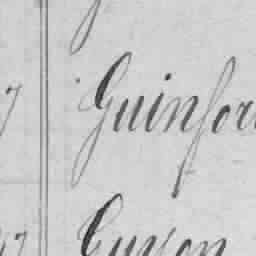 7 Guinfor
47 Guyon